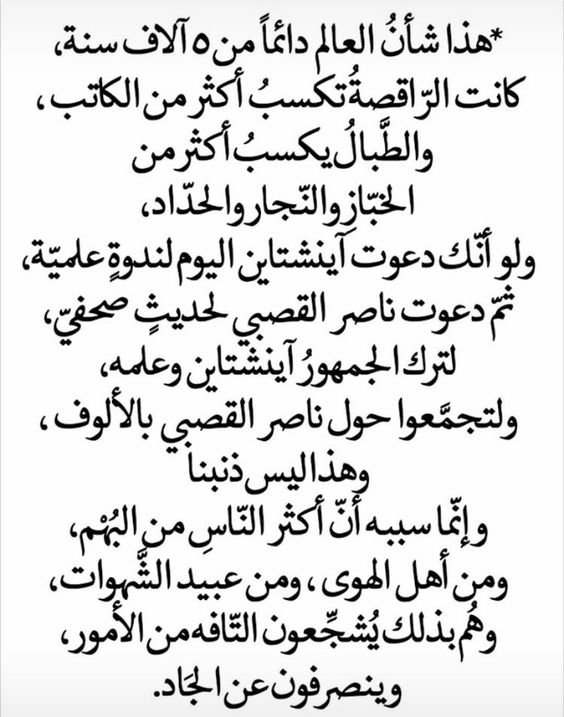 *هذا شأنُ العالم دائماً من ٥ آلاف سنة،
كانت الرّاقصةُ تكسبُ أكثر من الكاتب،
والطَّبالُ يكسبُ أكثر من
الخبّازِ والنّجار والحدّاد،
ولو أنّك دعوت آينشتاين اليوم لندوةٍ علميّة،
ثمّ دعوت ناصر القصبي لحديثٍ صحفيّ،
لترك الجمهورُ آينشتاين وعلمه،
ولتجمَّعوا حول ناصر القصبي بالألوف،
وهذا ليس ذنبنا
وإنّما سببه أنّ أكثر النّاسِ من البُهْم،
ومن أهل الهوى، ومن عبيد الشَّهوات،
وهُم بذلك يُشجِّعون التّافه من الأمور،
وينصرفون عن الجَاد.